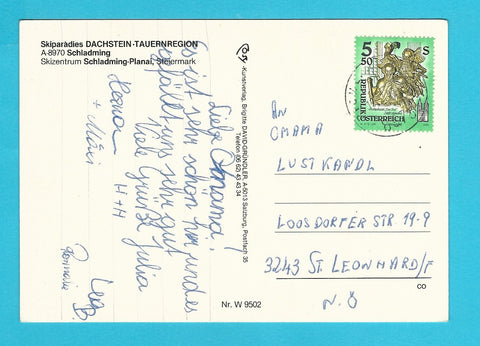 Skiparadies DACHSTEIN-TAUERNREGION
A-8970 Schladming
Skizentrum Schladming-Planai, Steiermark
Liebe Omama!
Es ist sehr schön hier und es
gefällt uns sehr gut
Viele Grüße Julia
H+H
+
Lea B.
-Kunstverlag, Brigitte DAVID-GRÜNDLER, A-5013 Salzburg, Postfach 35
Telefon 06 62 43 43 34
Nr. W 9502
5 50
S
REPUBLIK
ÖSTERREICH
An
OMAMA
LUSTKANDL
LOOSDORFER STR 19-9
3243 ST. LEONHARD/F
N.Ö
CO